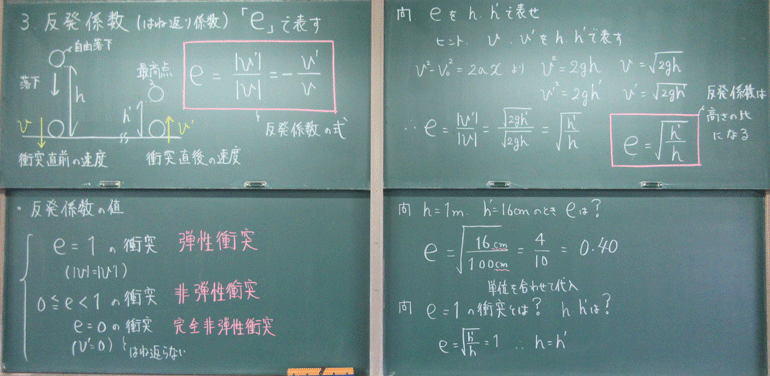 3. 反発係数 (はね返り係数) 「e」で表す
自由落下
落下
h
最高点
h'
v
v'
衝突直前の速度
衝突直後の速度
e = |v'|/|v| = - v'/v
反発係数の式
・反発係数の値
e = 1 の衝突 弾性衝突
(|v|=|v'|)
0 ≦ e < 1 の衝突 非弾性衝突
e = 0 の衝突 完全非弾性衝突
(v'=0) はね返らない
問 e を h. h' で表せ
ヒント v v' を h. h' で表す
v²-v₀² = 2ax より v² = 2gh v = √2gh
v'² = 2gh' v' = √2gh'
∴ e = |v'|/|v| = √2gh'/√2gh = √h'/h
e = √h'/h
反発係数は
高さの比
になる
問 h = 1m. h' = 16cm のとき e は?
e = √16cm/100cm = 4/10 = 0.40
単位を合わせて代入
問 e = 1 の衝突とは? h h' は?
e = √h'/h = 1 ∴ h = h'